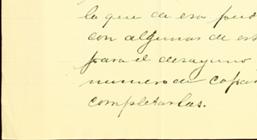 la que de esa pud
con algunas de es
para el desayuno
numero de copas
completarlas.